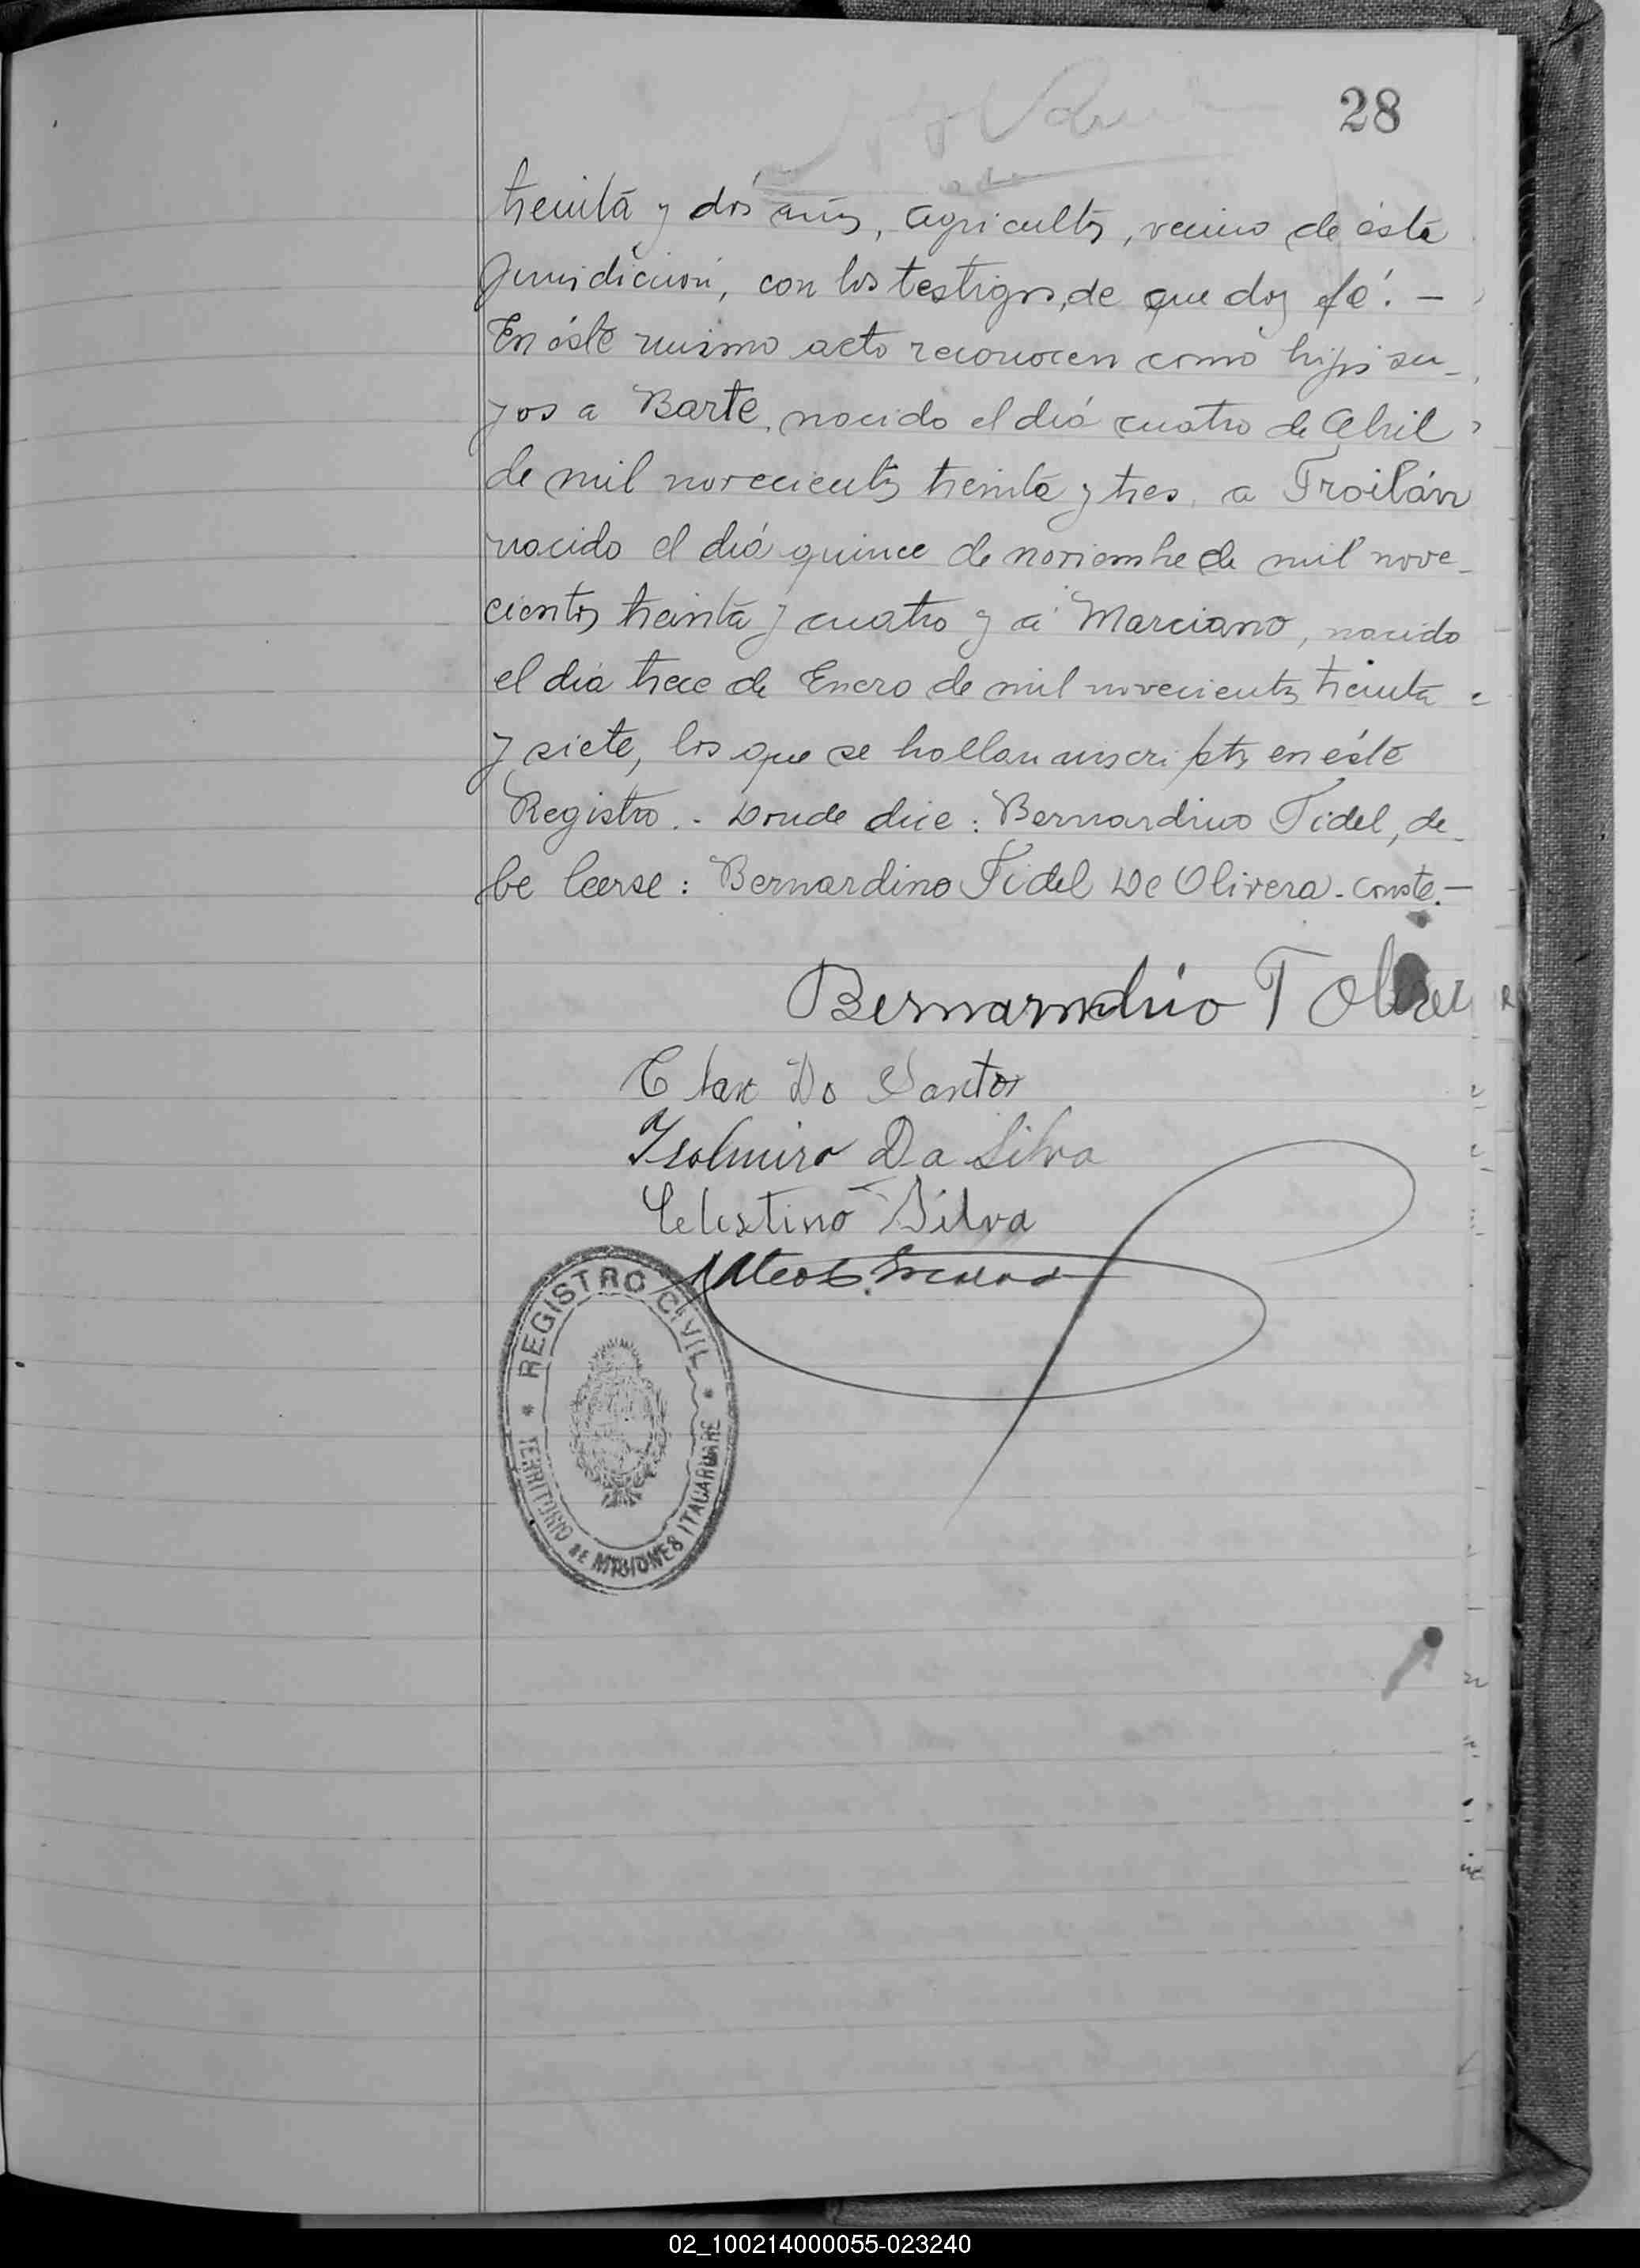 28
treinta y dós años, agricultor, vecino de ésta
Jurisdicción, con los testigos, de que doy fé. —
En éste mismo acto reconocen como hijos su-
yos a Barte, nacido el diá cuatro de Abril
de mil novecientos treinta y tres, a Troilán
nacido el diá quince de noviembre de mil nove-
cientos treinta y cuatro y a Marciano, nacido
el diá trece de Enero de mil novecientos treinta
y siete, los que se hallan inscriptos en éste
Registro. - Donde dice: Bernardino Fidel, de-
be leerse: Bernardino Fidel De Olivera. Conste. —
Bernarndino T
Do Santos
Isolmiro Da Silva
Celestino Silva
REGISTRO CIVIL
TERRITORIO DE MISIONES ITACARUARE
02_100214000055-023240